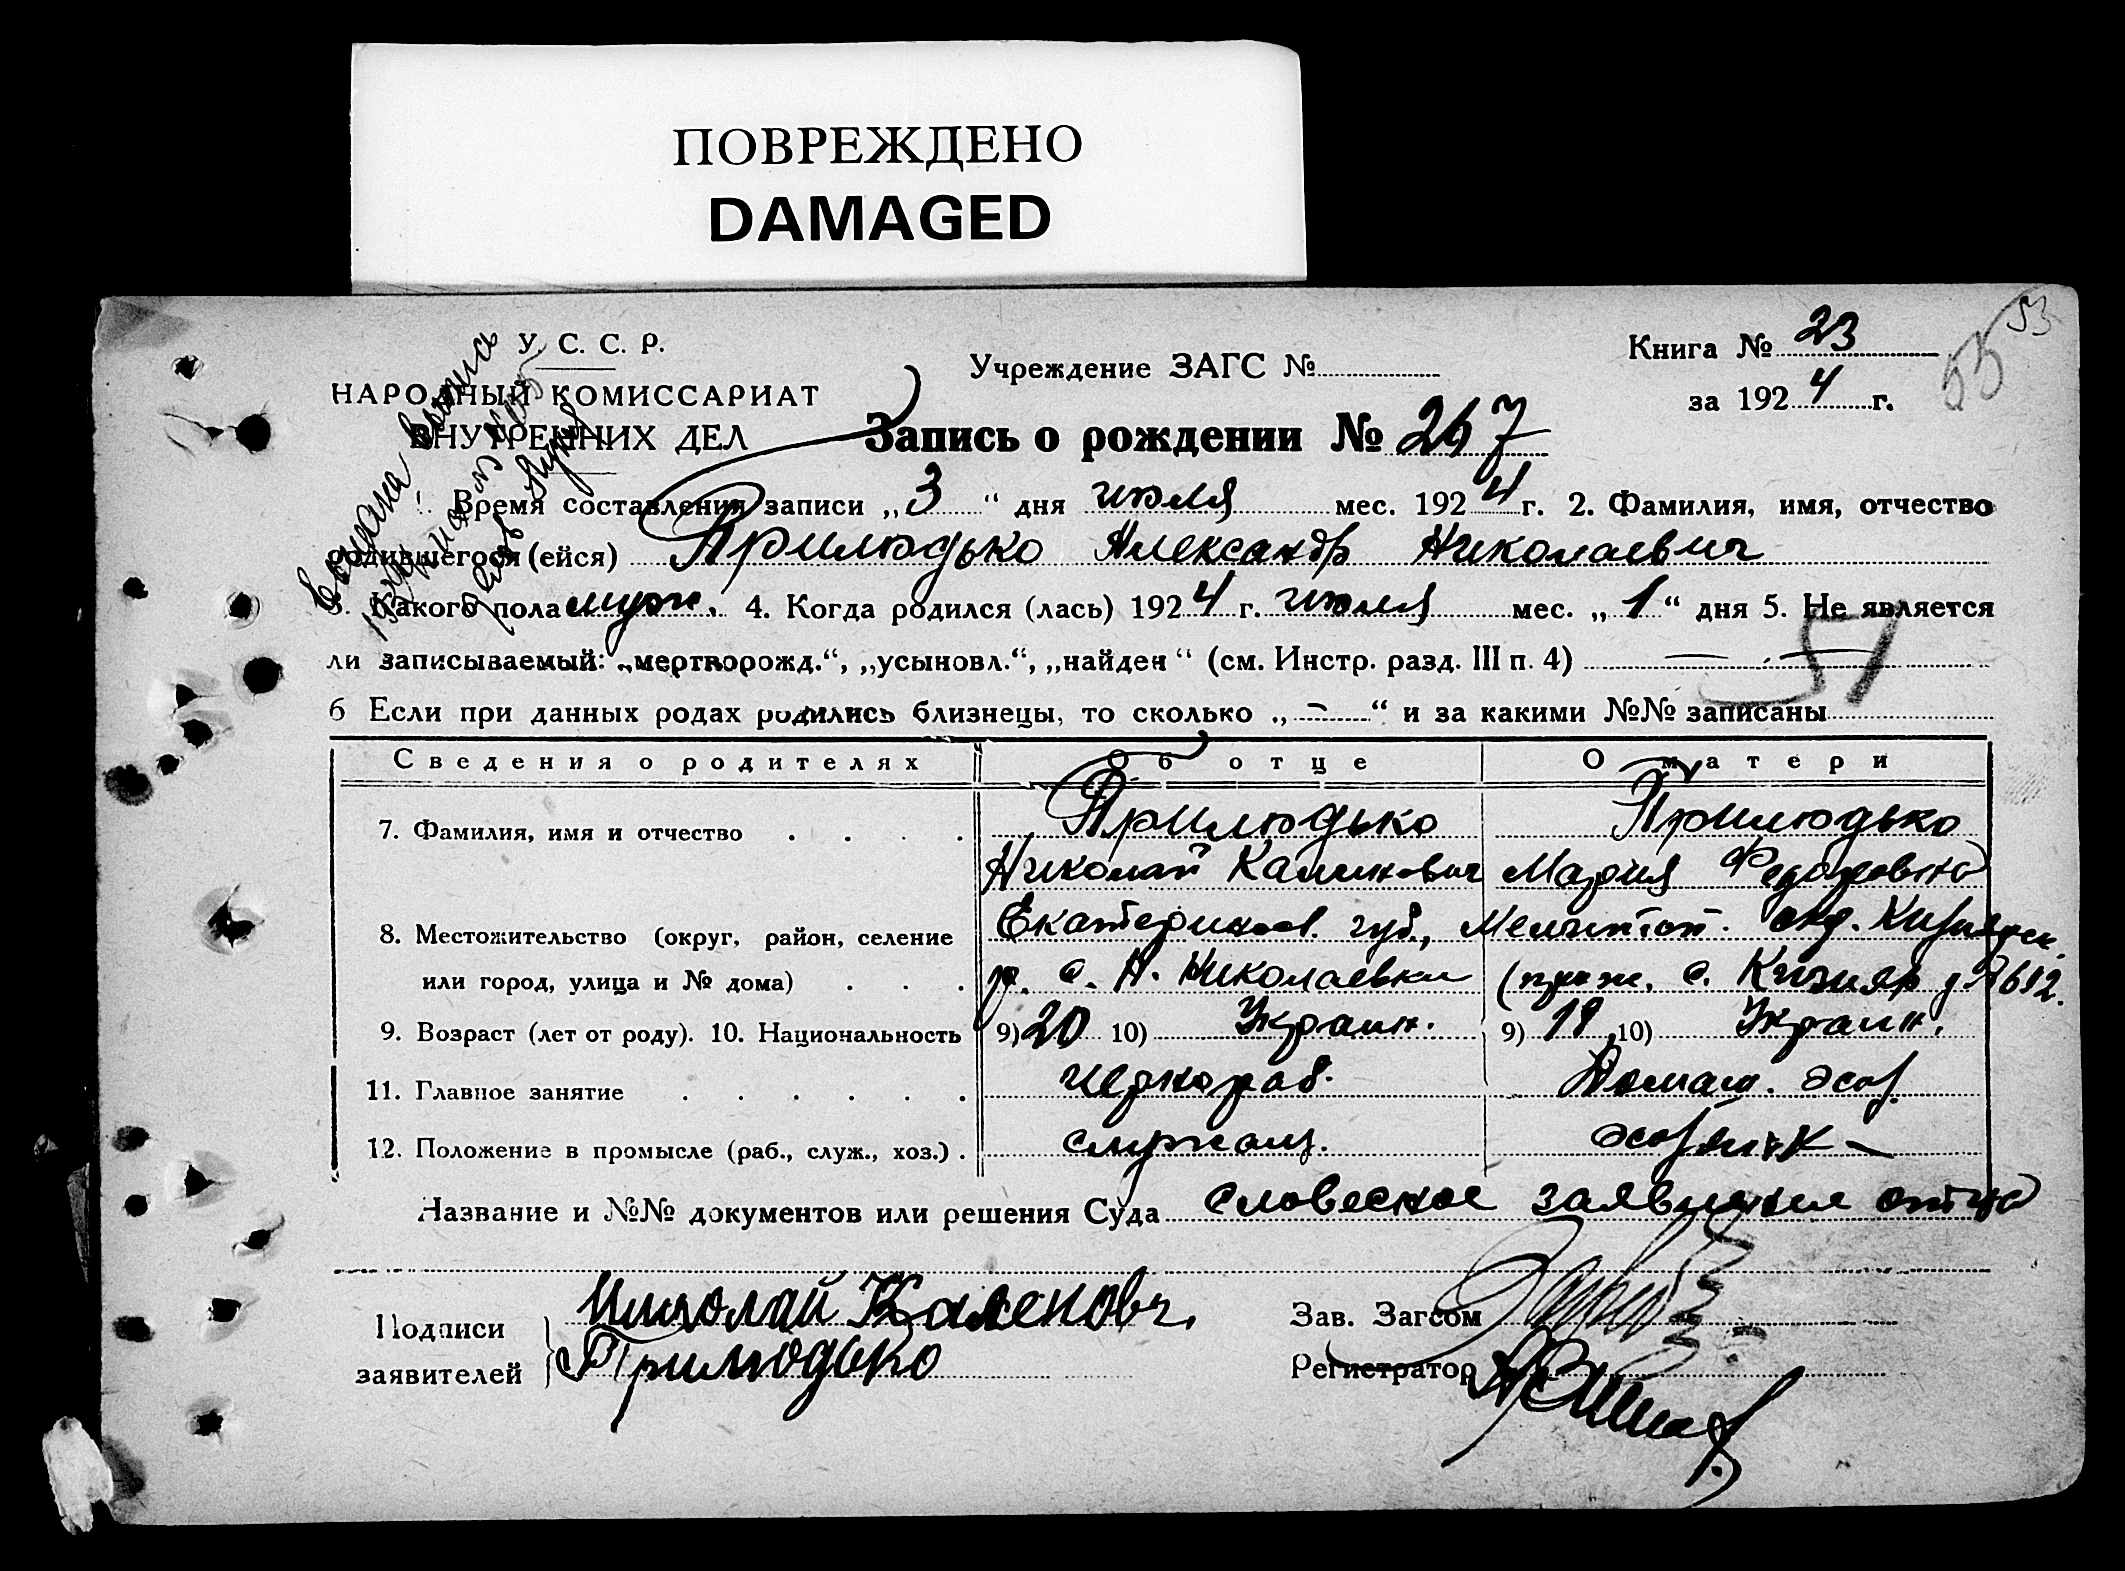 ПОВРЕЖДЕНО
DAMAGED
У. С. С. Р.
НАРОДНЫЙ КОМИССАРИАТ
ВНУТРЕННИХ ДЕЛ
Учреждение ЗАГС №
Книга № 23
за 1924 г.
53
55
Запись о рождении № 267
Время составления записи „3“ дня июля мес. 1924 г. 2. Фамилия, имя, отчество
родившегося (ейся) Прилюдько Александр Николаевич
3. Какого пола муж. 4. Когда родился (лась) 1924 г. июля мес. „1“ дня 5. Не является
ли записываемый: „мертворожд.“, „усыновл.“, „найден“ (см. Инстр. разд. III п. 4) —
51
6 Если при данных родах родились близнецы, то сколько „-“ и за какими №№ записаны
Сведения о родителях Об отце О матери
7. Фамилия, имя и отчество Прилюдько Прилюдько
Николай Калинович Мария Федоровна
8. Местожительство (округ, район, селение Екатеринослав. губ., Мелитоп. окр. Кизиярск.
или город, улица и № дома) р. с. Н. Николаевки (прож. с. Кизияр
9. Возраст (лет от роду). 10. Национальность 9) 20 10) Украин. 9) 18 10) Украин.
11. Главное занятие чернораб. Домаш. хоз.
12. Положение в промысле (раб., служ., хоз.) служащ.
Название и №№ документов или решения Суда словесное заявление отца
Подписи Николай Каленович
заявителей Прилюдько
Зав. Загсом
Регистратор